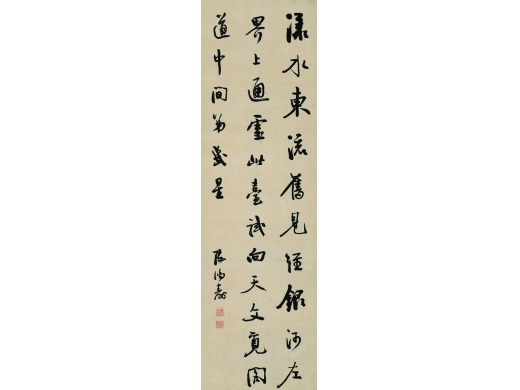 漾水東流舊見經銀河左
界上通靈此臺試向天文覓閣
道中間第幾星
陳鴻壽